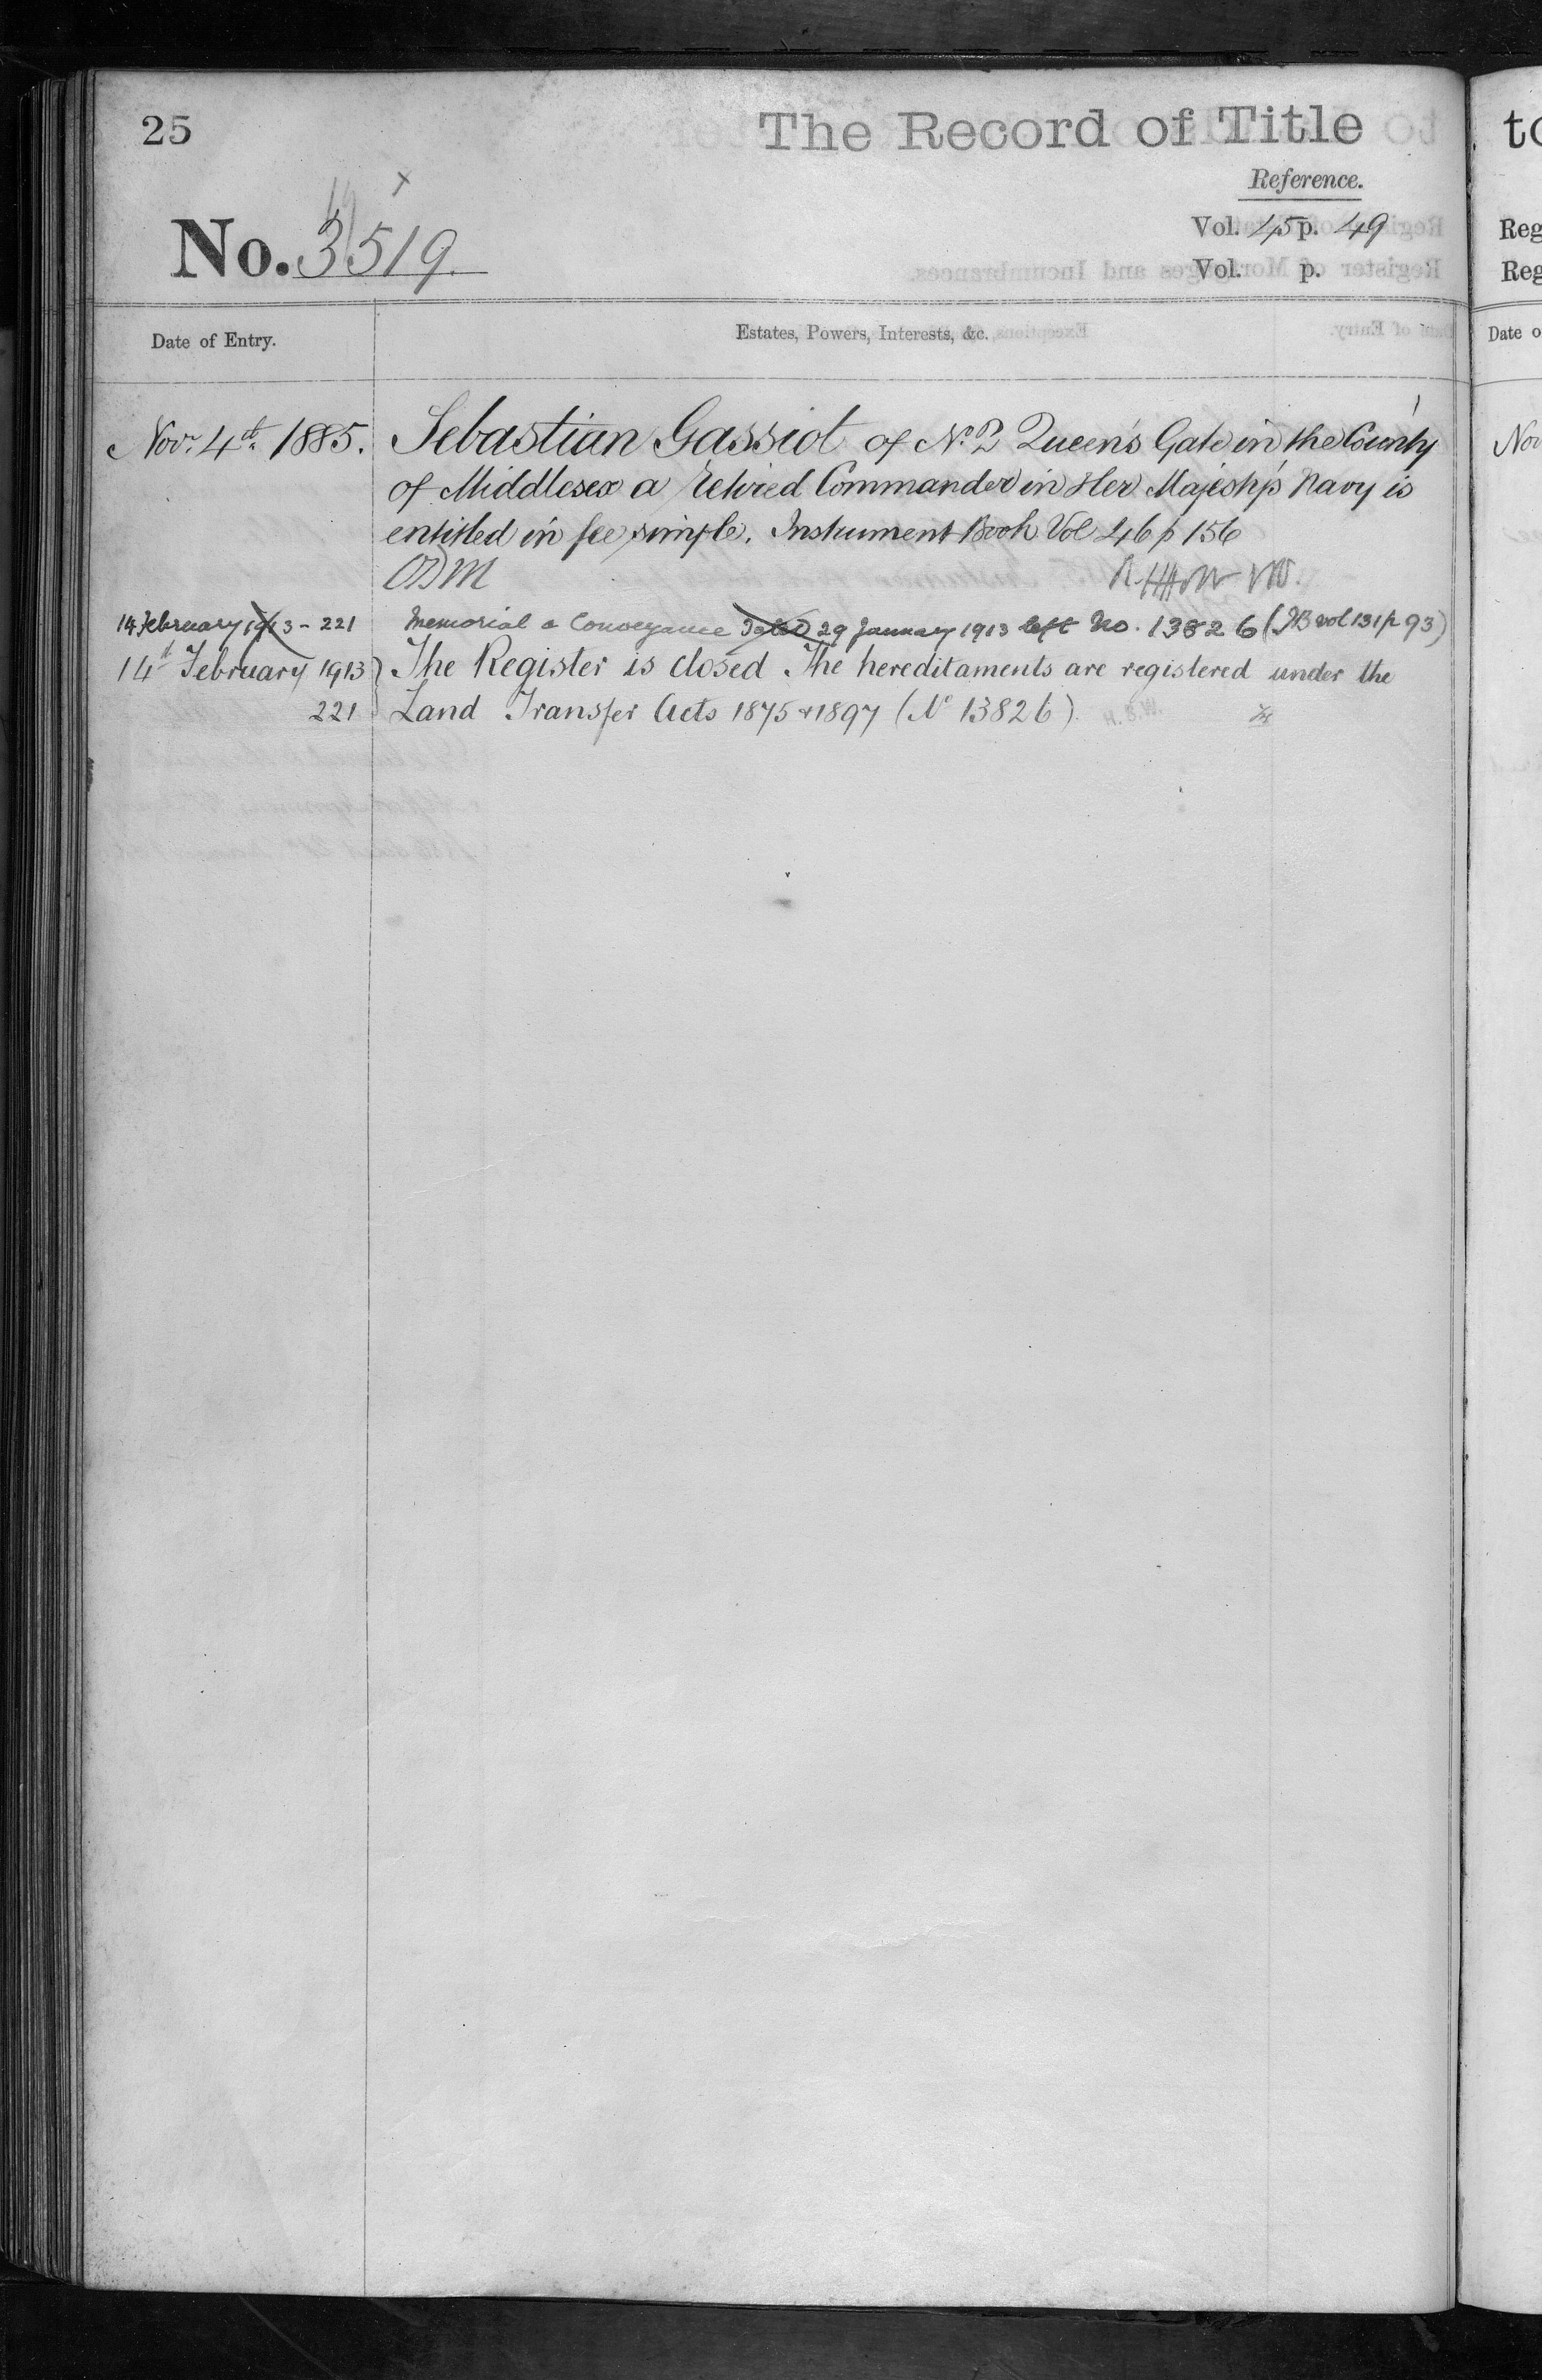 25
The Record of Title
Reference.
No. 3519.
Vol. 45 p. 49
Vol. p.
Date of Entry.
Estates, Powers, Interests, &c.
Novr. 4th 1885.
Sebastian Gassiot of No. 2 Queen's Gate in the County
of Middlesex a retired Commander in Her Majesty's Navy is
entitled in fee simple. Instrument Book Vol 46 p 156
14 February 1913 - 221
Memorial a Conveyance dated 29 January 1913 left No. 13826 (IB vol 131 p 93)
14th February 1913
The Register is closed. The hereditaments are registered under the
221
Land Transfer Acts 1875 & 1897 (No 13826).
to
Reg
Reg
Date o
Nov